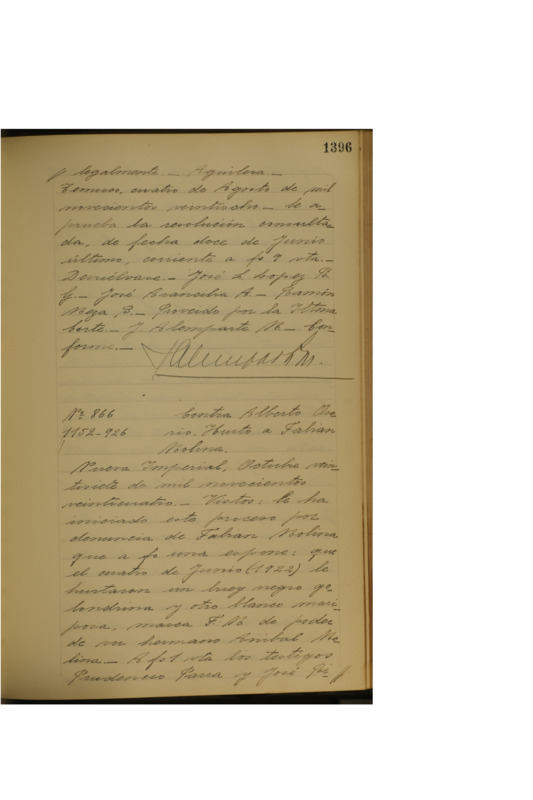 1396
legalmente.— Aguilera.—
Temuco, cuatro de Agosto de mil
novecientos veintiocho.— Se a-
prueba la resolución consulta
da, de fecha doce de Junio
último, corriente a fs 9 vta.—
Devuélvase.— José L Lopez
G.— José Arancibia A.— Ramón
Meza B.— Proveido por la Iltma
Corte.— J Alemparte R.— Con-
forme.—
Nº 866
Contra Alberto
1152-926
Hurto a Fabian
Molina.
Nueva Imperial, Octubre vein-
tisiete de mil novecientos
veinticuatro.— Vistos: Se ha
iniciado este proceso por
denuncia de Fabian Molina
que a fs una expone: que
el cuatro de Junio (1922) le
hurtaron un buey negro go
londrina y otro blanco mari-
posa, marca F. M. de poder
de su hermano Anibal Mo
lina.— A fs 1 vta los testigos
Prudencio Parra y José